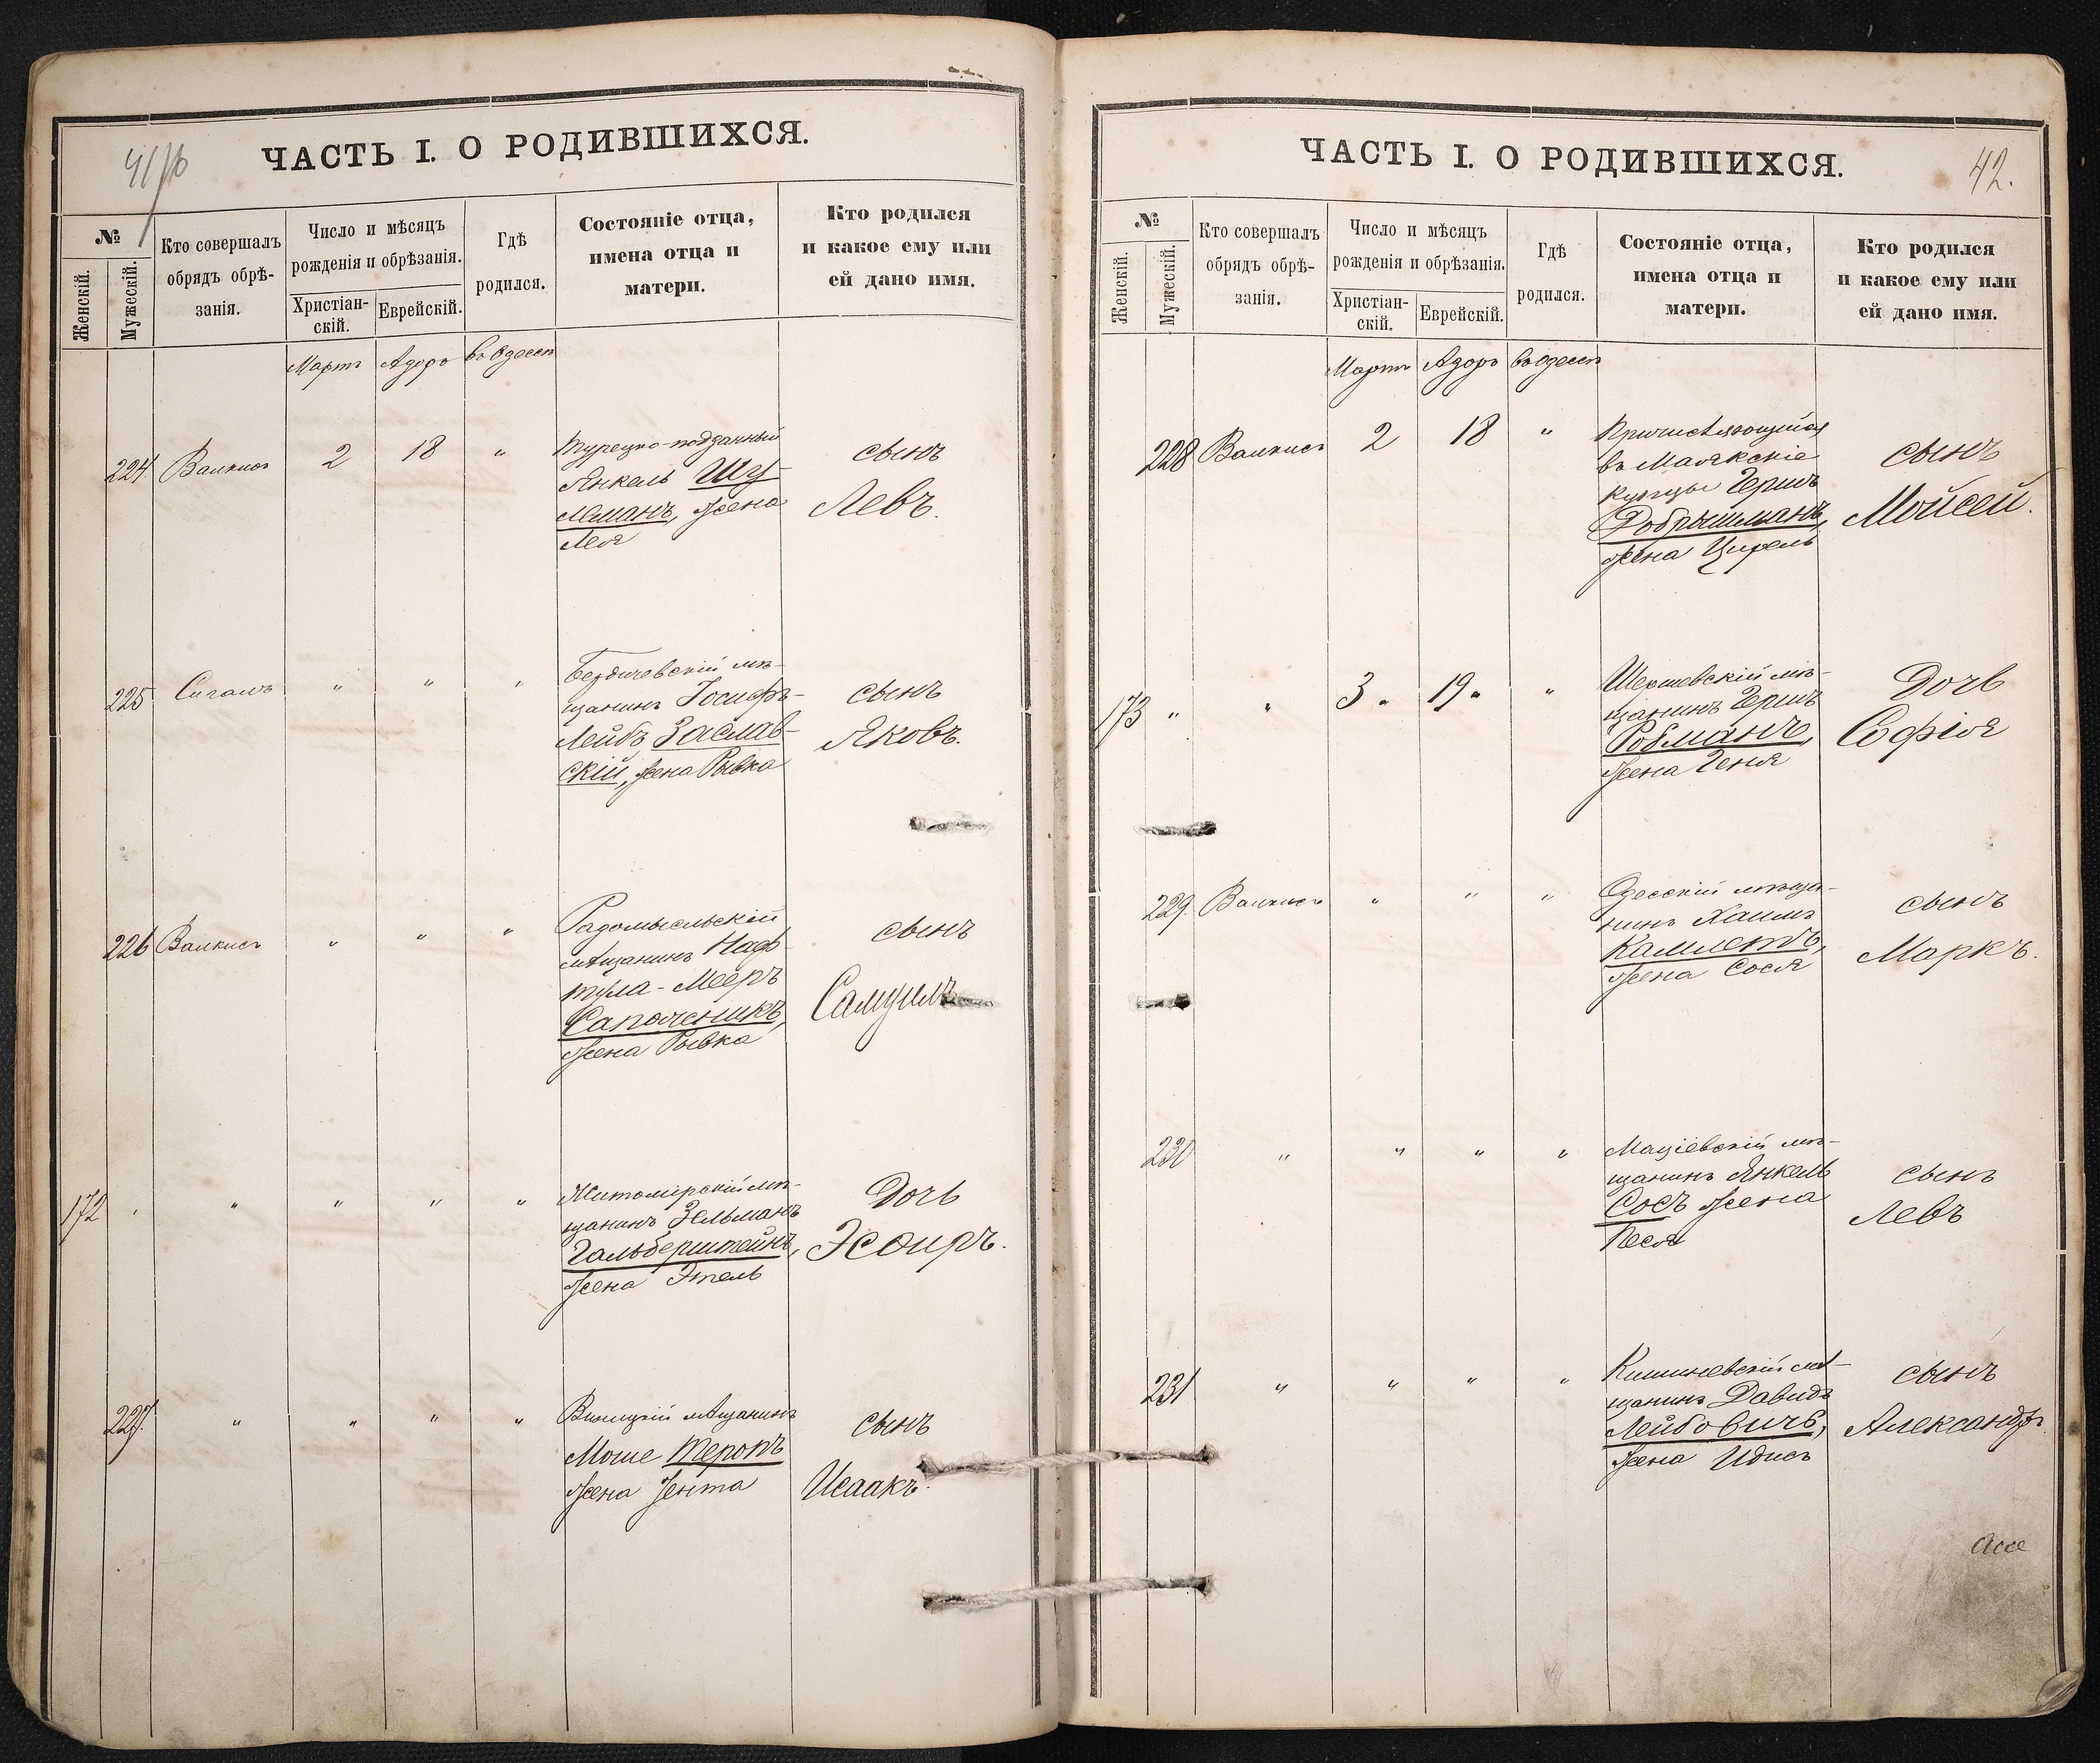 41/об
ЧАСТЬ I. О РОДИВШИХСЯ.
№
Женскій.
Мужескій.
Кто совершалъ
обрядъ обрѣ-
занія.
Число и мѣсяцъ
рожденія и обрѣзанія.
Христіан-
скій.
Еврейскій.
Гдѣ
родился.
Состояніе отца,
имена отца и
матери.
Кто родился
и какое ему или
ей дано имя.
Мартъ Адоръ въ Одессѣ
224. Валкисъ 2 18 "
Турецко-подданный
Янкель Шу-
леманъ, жена
Лея
сынъ
Левъ.
225 Сигалъ " " "
Бердичевскій мѣ-
щанинъ Іосифъ-
Лейбъ Заслав-
скій, жена Рывка
сынъ
Яковъ.
226 Валкисъ " " "
Радомысльскій
мѣщанинъ Наф-
тула-Мееръ
Сапожникъ,
жена Рывка
сынъ
Самуилъ
172 " " " " "
Житомірскій мѣ-
щанинъ Зельманъ
Гальберштейнъ,
жена Этель
Дочь
Эсѳиръ.
227. " " " "
Виницкій мѣщанинъ
Моше Теронъ
жена Јента
сынъ
Исаакъ.
42.
ЧАСТЬ I. О РОДИВШИХСЯ.
№
Женскій.
Мужескій.
Кто совершалъ
обрядъ обрѣ-
занія.
Число и мѣсяцъ
рожденія и обрѣзанія.
Христіан-
скій.
Еврейскій.
Гдѣ
родился.
Состояніе отца,
имена отца и
матери.
Кто родился
и какое ему или
ей дано имя.
Мартъ Адоръ въ Одессѣ
228 Валкисъ 2 18 "
Причисляющійся
въ Маякскіе
купцы Гершъ
Добрышманъ,
жена Цирель
сынъ
Мойсей.
173 " " 3 " 19 " "
Шершевскій мѣ-
щанинъ Гершъ
Ройманъ,
жена Геня
Дочь
Софія
229. Валкисъ " " "
Одесскій мѣща-
нинъ Хаимъ
Камлетъ,
жена Сося
сынъ
Маркъ.
230 " " " "
Маціевскій мѣ-
щанинъ Янкель
Сосъ жена
Песя
сынъ
Левъ
231 " " " "
Кишиневскій мѣ-
щанинъ Давидъ
Лейбовичъ,
жена Идисъ
сынъ
Александръ.